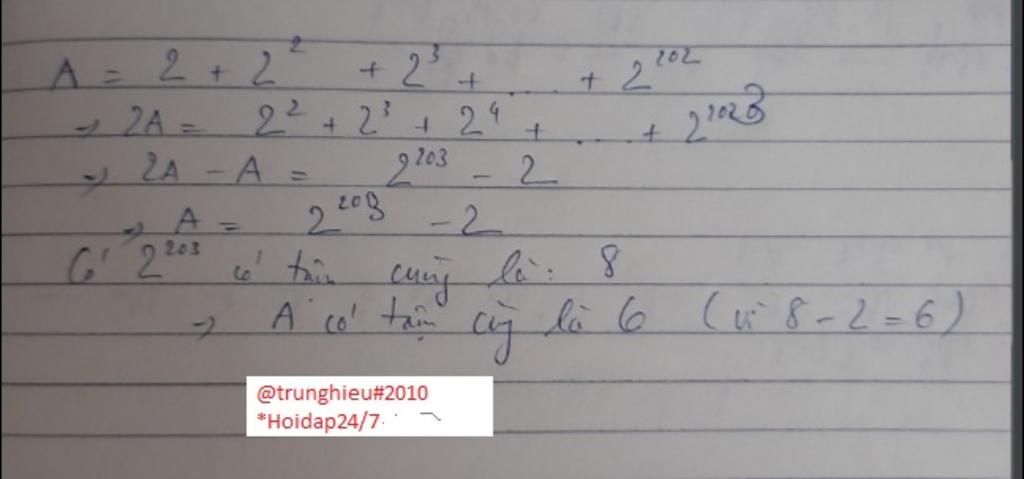 A = 2 + 2² + 2³ + .... + 2²⁰²
→ 2A = 2² + 2³ + 2⁴ + .... + 2²⁰³
→ 2A - A = 2²⁰³ - 2
→ A = 2²⁰³ - 2
Có 2²⁰³ có tận cùng là: 8
→ A có tận cùng là 6 (vì 8 - 2 = 6)
@trunghieu#2010
*Hoidap24/7